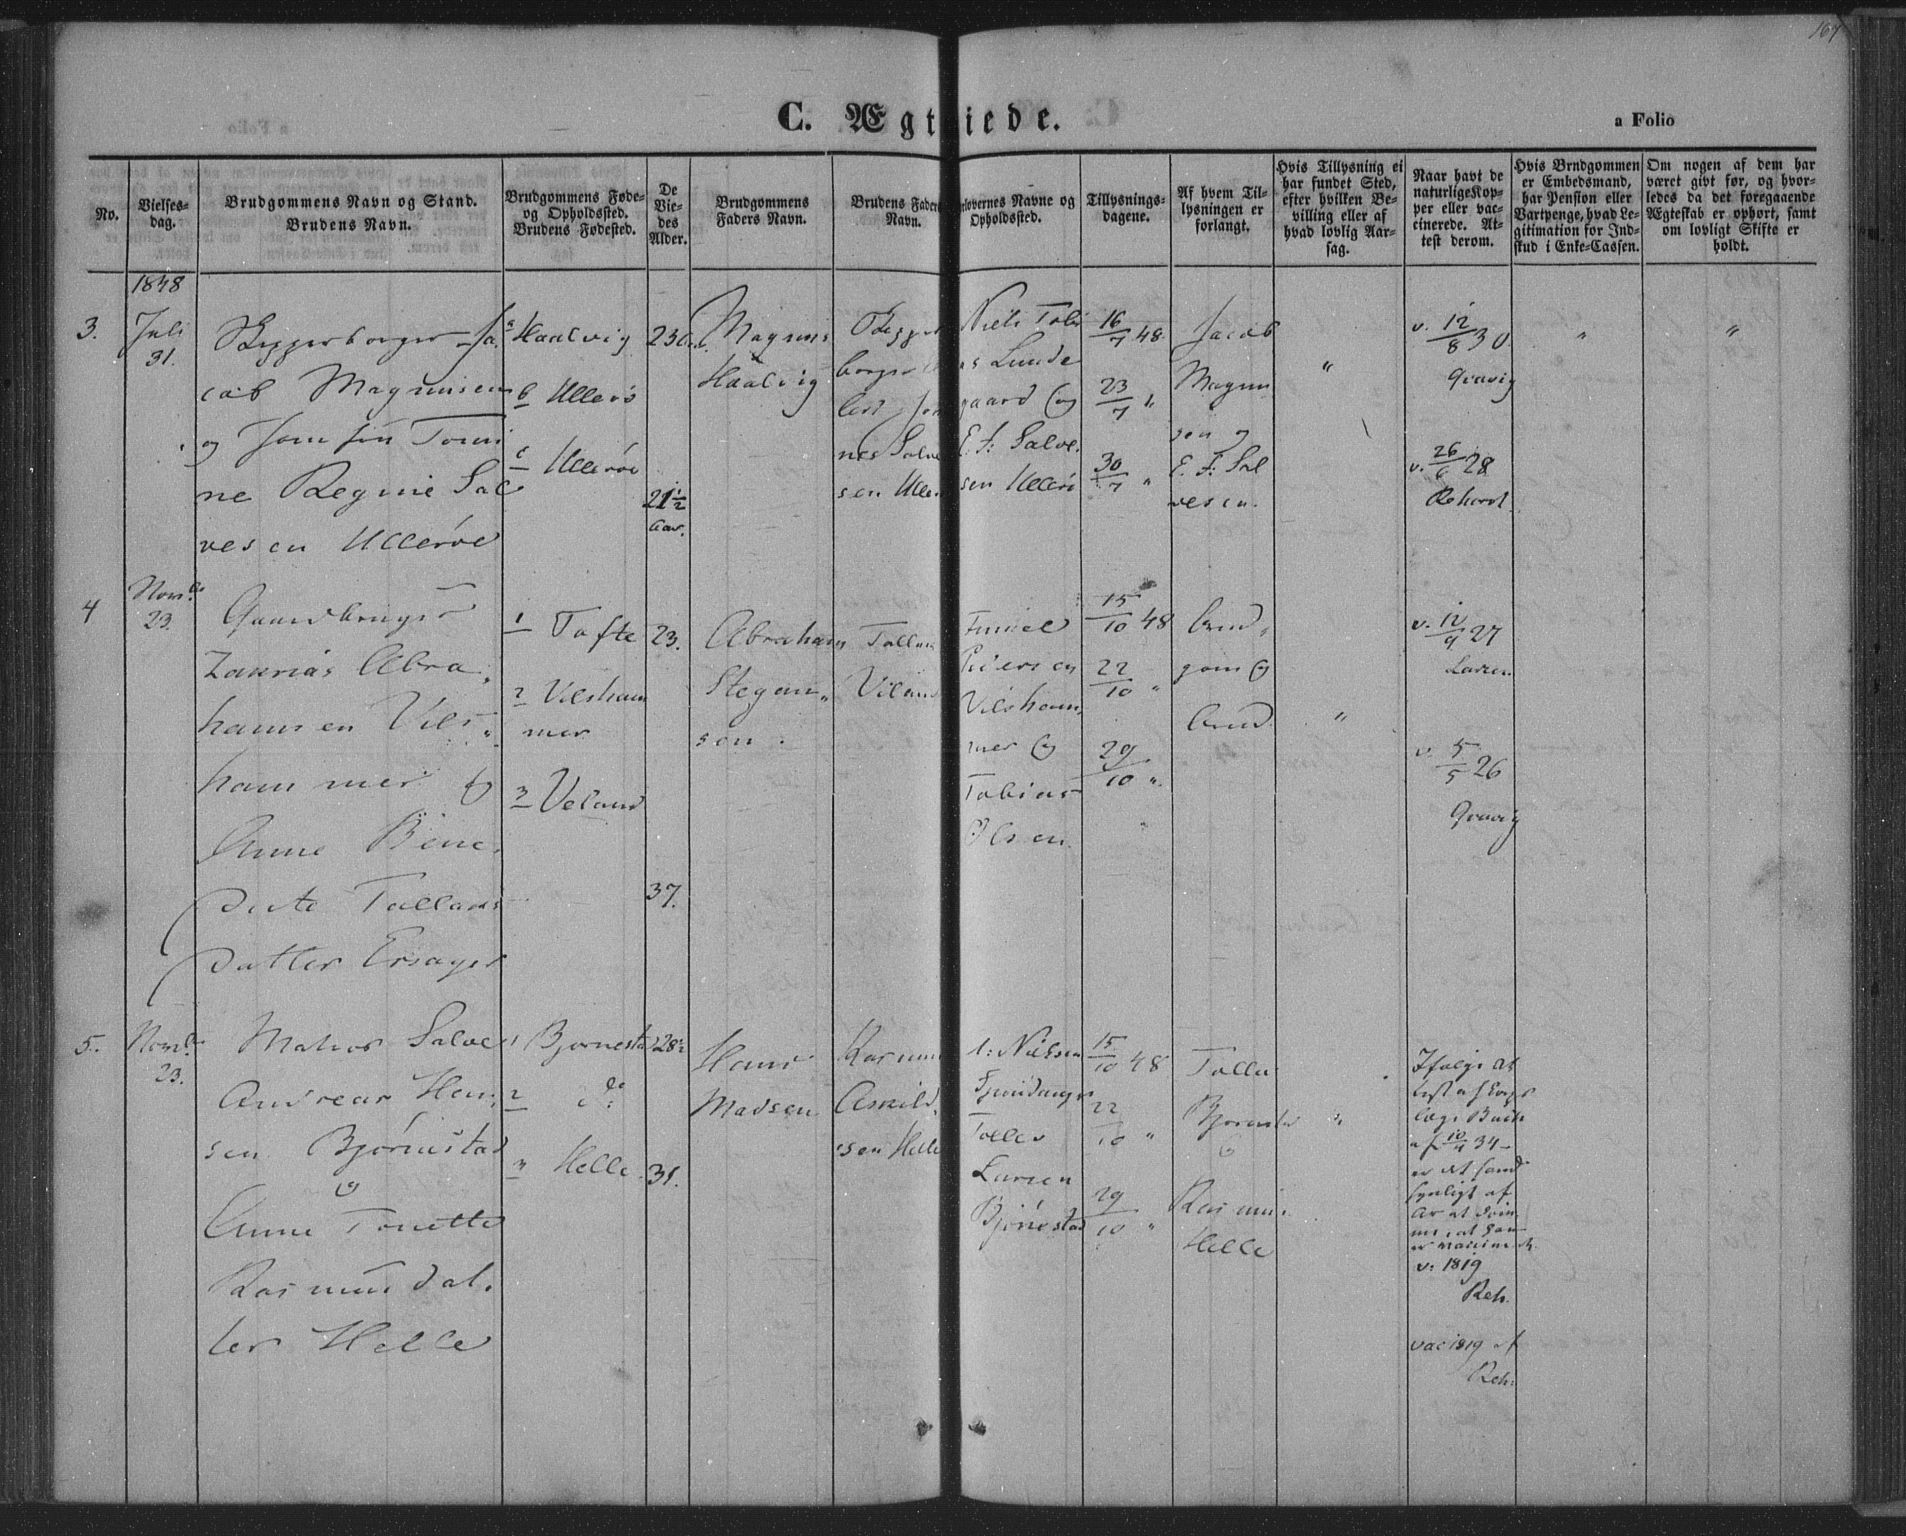 167
C. Ægteviede.
a Folio
No.
Vielses-
dag.
Brudgommens Navn og Stand.
Brudens Navn.
Brudgommens Føde-
og Opholdssted.
Brudens Fødested.
De
Vie-
des
Alder.
Brudgommens
Faders Navn.
Brudens Faders
Navn.
Forlovernes Navne og
Opholdssted.
Tillysnings-
dagene.
Af hvem Til-
lysningen er
forlangt.
Hvis Tillysning ei
har fundet Sted,
efter hvilken Be-
villing eller af
hvad lovlig Aar-
sag.
Naar havt de
naturlige Kop-
per eller vac-
cinerede. At-
test derom.
Hvis Brudgommen
er Embedsmand,
har Pension eller
Vartpenge, hvad Le-
gitimation for Ind-
skud i Enke-Cassen.
Om nogen af dem har
været givt før, og hvor-
ledes da det foregaaende
Ægteskab er ophørt, samt
om lovligt Skifte er
holdt.
1848
3.
Juli
31.
Skipperborger Ja
cob Magnusen
og Jomfru Tomi
ne Regine Sal
vesen Ullerøe
a Haalvig
b Ullerø
c Ullerøe
23
21½
Aar.
Magnus
Haalvig
Skipper
borger
nes Salve
sen Uller
Niels Tobi
as Lunde
gaard og
E. F. Salve
sen Ullerø
16/7 48.
23/7 "
30/7 "
Jacob
Magnu
sen og
E. F. Sal
vesen.
"
v. 12/8 30.
Gravig
v. 26/6 28
Rehord.
"
"
4
Novbr
23.
Gaardbruger
Zakrias Abra
hamsen Vils
hammer og
Anne Bene
dicte Tallaks
datter Ersager
1 Tofte
2 Vilsham
mer
3 Veland
23.
37.
Abraham
Stegan
sen.
Tallak
Viland
Pedersen
Vilsham
mer og
Tobias
Olsen.
15/10 48
22/10 "
29/10 "
Brud
gom og
Brud.
"
v. 12/9 27
Larsen
v. 5/5 26
Gravig
5.
Novbr
23.
Andreas Han
sen Bjørnestad
og
Anne Tonette
Rasmus dat
ter Helle
1 Bjørnestad
2 do
3 Helle
28½
31.
Hans
Madsen
Rasmus
Askild
sen Helle
Nielsen
Tollev
Larsen
Bjørnestad
15/10 48
22/10 "
29/10 "
Tolle
Bjørnestad
og
Rasmus
Helle
"
Ifølge At
test af Corps
læge Buch
af 10/4 34
er det sand
synligt af
Ar at døm
me, at han
er vaccineret
v. 1819
Reh.
vac 1819 af
Reh.